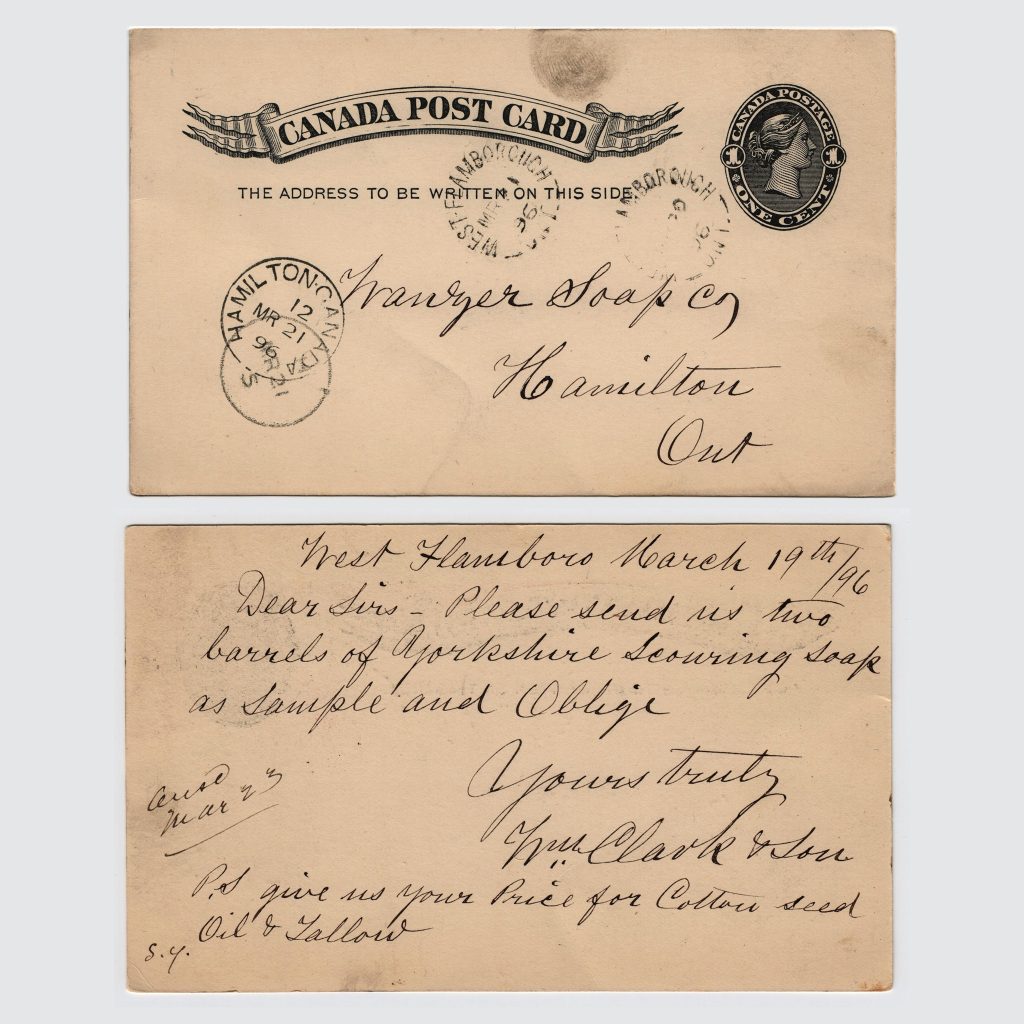 CANADA POST CARD
CANADA POSTAGE
1 1
ONE CENT
THE ADDRESS TO BE WRITTEN ON THIS SIDE
WEST-FLAMBOROUGH
MR
96
ONT
AMBOROUGH
96
ONT
HAMILTON·CANADA
12
MR 21
96
MR 21
5
Wanzer Soap Co
Hamilton
Ont
West Flamboro March 19th/96
Dear Sirs - Please send us two
barrels of Yorkshire Scouring Soap
as Sample and Oblige
Yours truly
Wm Clark & Son
Ansd
Mar 23
P.S give us your Price for Cotton seed
Oil & Tallow
S.Y.